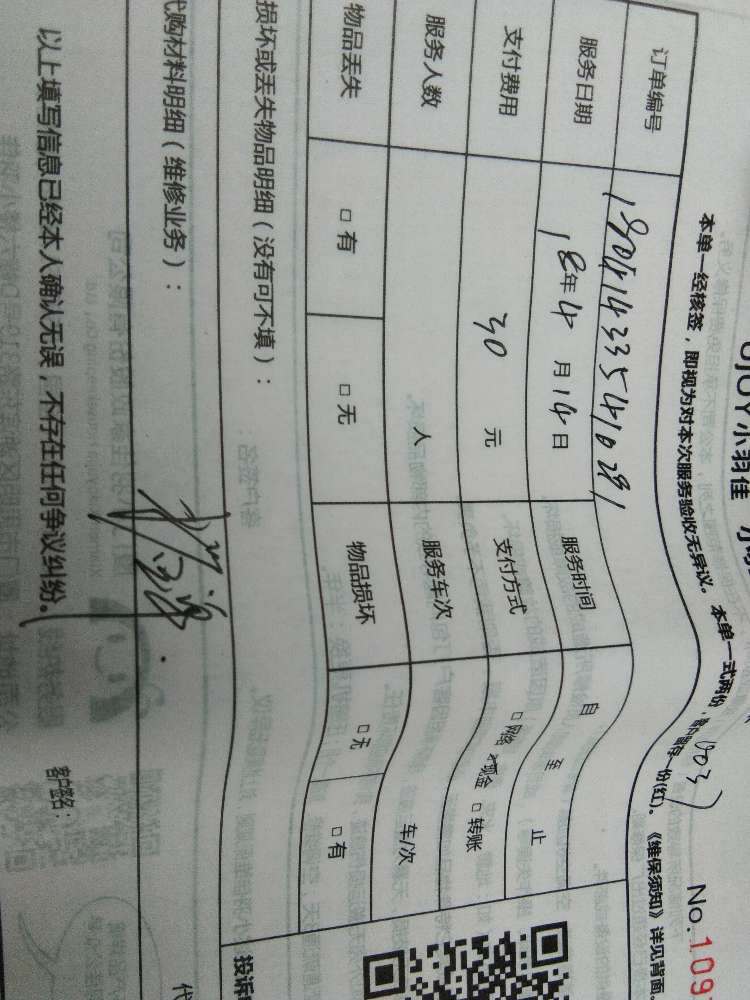 UJOY小羽佳
No.109
本单一经核签，即视为对本次服务验收无异议。 本单一式两份，客户留存一份(红)。《维保须知》详见背面
003
订单编号 180414335441028 服务时间 自 至 止
服务日期 18年4月14日 支付方式 □网络 现金 □转账
支付费用 30 元 服务车次 车/次
服务人数 人 物品损坏 □无 □有
物品丢失 □有 □无
损坏或丢失物品明细（没有可不填）：
代购材料明细（维修业务）：
投诉
代
以上填写信息已经本人确认无误，不存在任何争议纠纷。
客户签名：